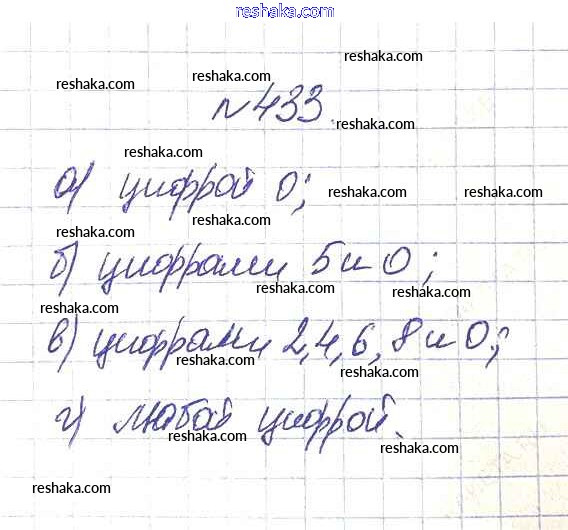 reshaka.com
reshaka.com
reshaka.com
reshaka.com
№433.
reshaka.com
reshaka.com
а) цифрой 0;
reshaka.com
reshaka.com
reshaka.com
б) цифрами 5 и 0;
reshaka.com
reshaka.com
reshaka.com
в) цифрами 2, 4, 6, 8 и 0;
reshaka.com
reshaka.com
г) любой цифрой.
reshaka.com
reshaka.com
reshaka.com